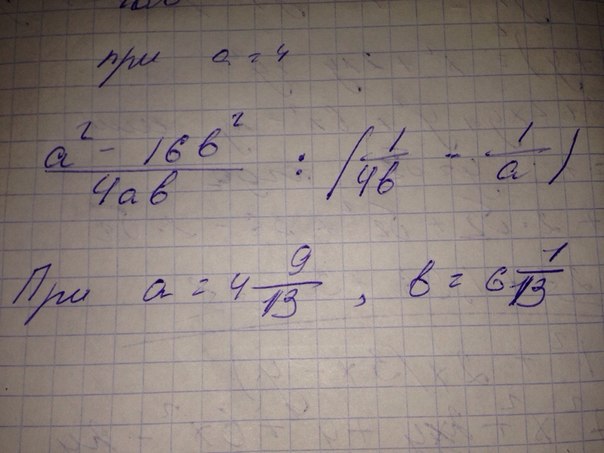 при a = 4
(a² - 16b²)/(4ab) : (1/(4b) - 1/a)
При a = 4 9/13, b = 6 1/13